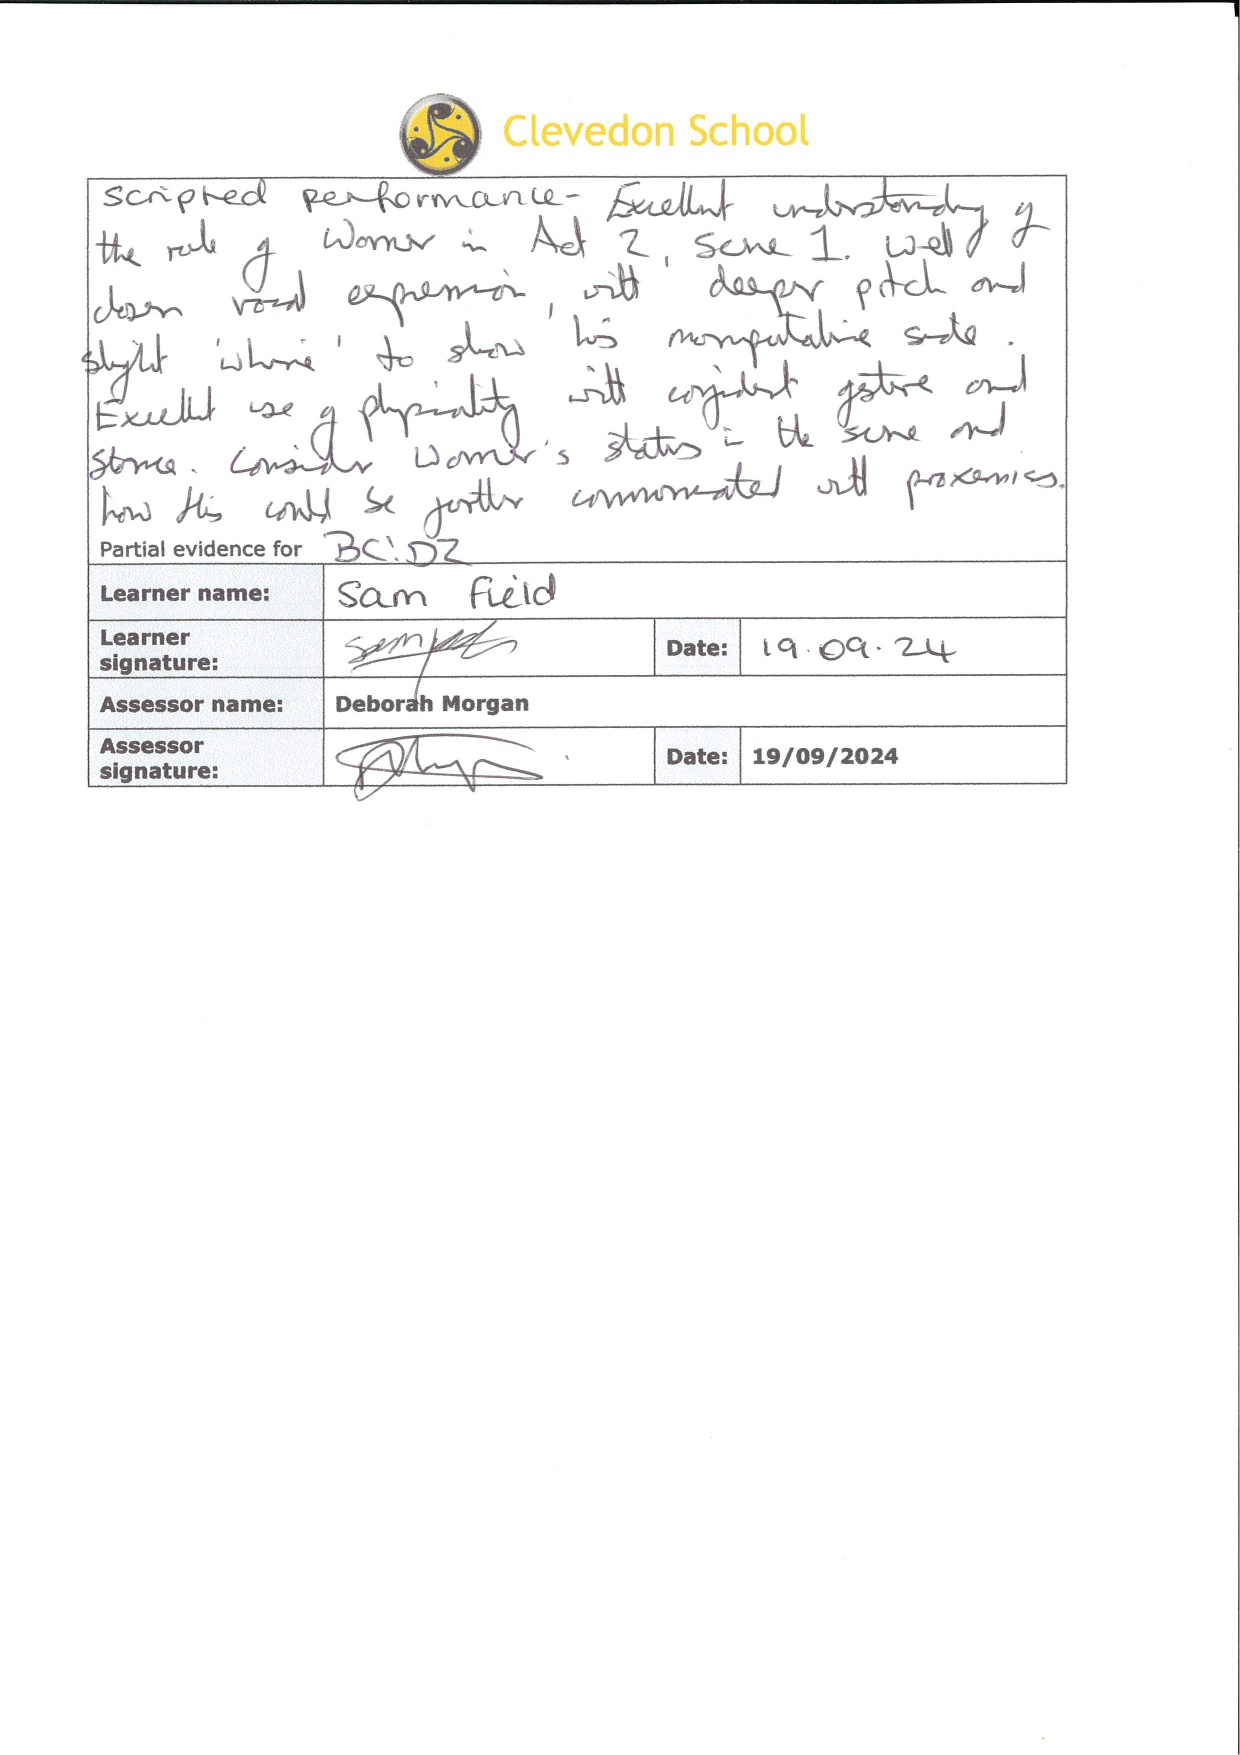 Clevedon School
Scripted performance- Excellent understanding of
the role of Warner in Act 2, Scene 1. Well
chosen vocal expression, with deeper pitch and
slight 'whine' to show his manipulative side.
Excellent use of physicality with confident gesture and
stance. Consider Warner's status in the scene and
how this could be further communicated with proxemics.
Partial evidence for BC.D2
Learner name: Sam Field
Learner signature: Date: 19.09.24
Assessor name: Deborah Morgan
Assessor signature: Date: 19/09/2024